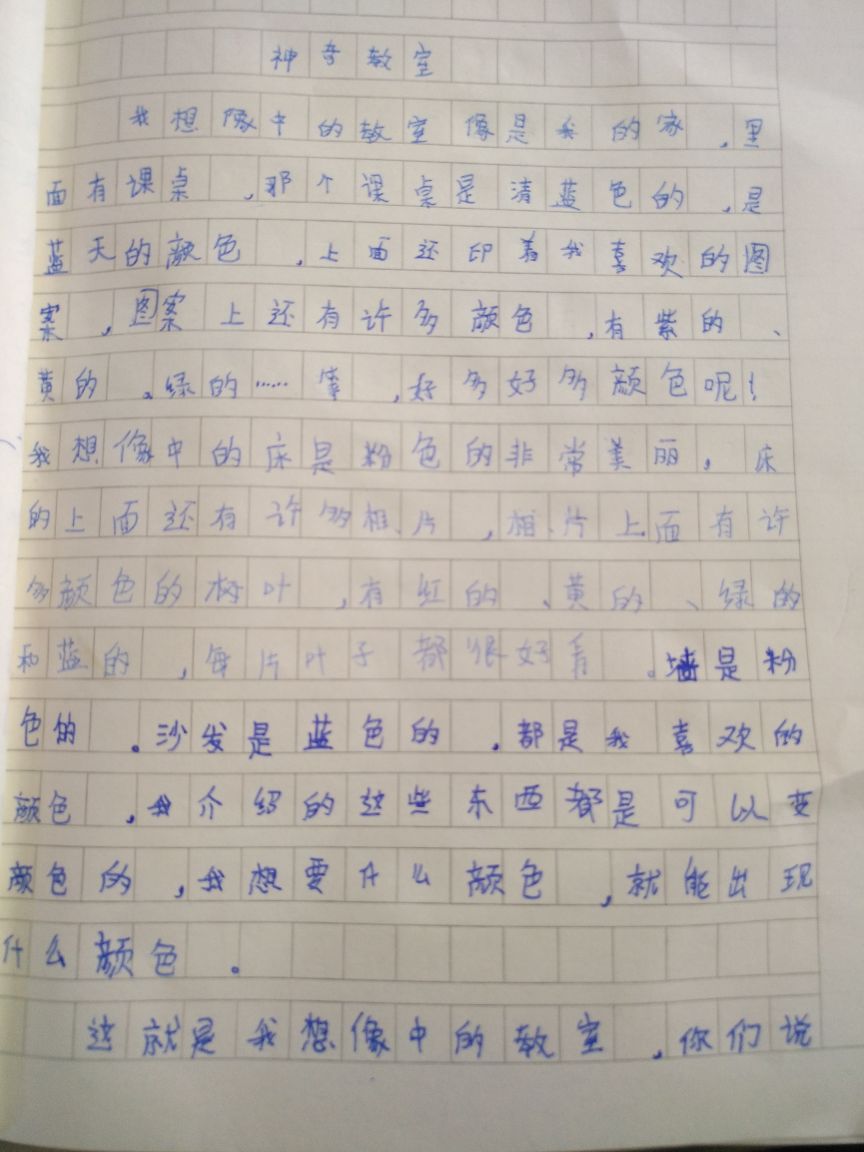 神奇教室
我想像中的教室像是我的家，里
面有课桌，那个课桌是清蓝色的，是
蓝天的颜色，上面还印着我喜欢的图
案，图案上还有许多颜色，有紫的、
黄的、绿的……等，好多好多颜色呢！
我想像中的床是粉色的非常美丽，床
的上面还有许多相片，相片上面有许
多颜色的树叶，有红的、黄的、绿的
和蓝的，每片叶子都很好看。墙是粉
色的。沙发是蓝色的。都是我喜欢的
颜色，我介绍的这些东西都是可以变
颜色的，我想要什么颜色，就能出现
什么颜色。
这就是我想像中的教室，你们说